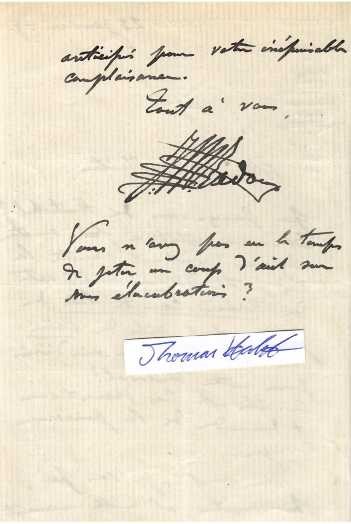 anticipés pour votre inépuisable
complaisance.
Tout à vous,
Vous n'avez pas eu le temps
de jeter un coup d'œil sur
mes élucubrations ?
Thomas